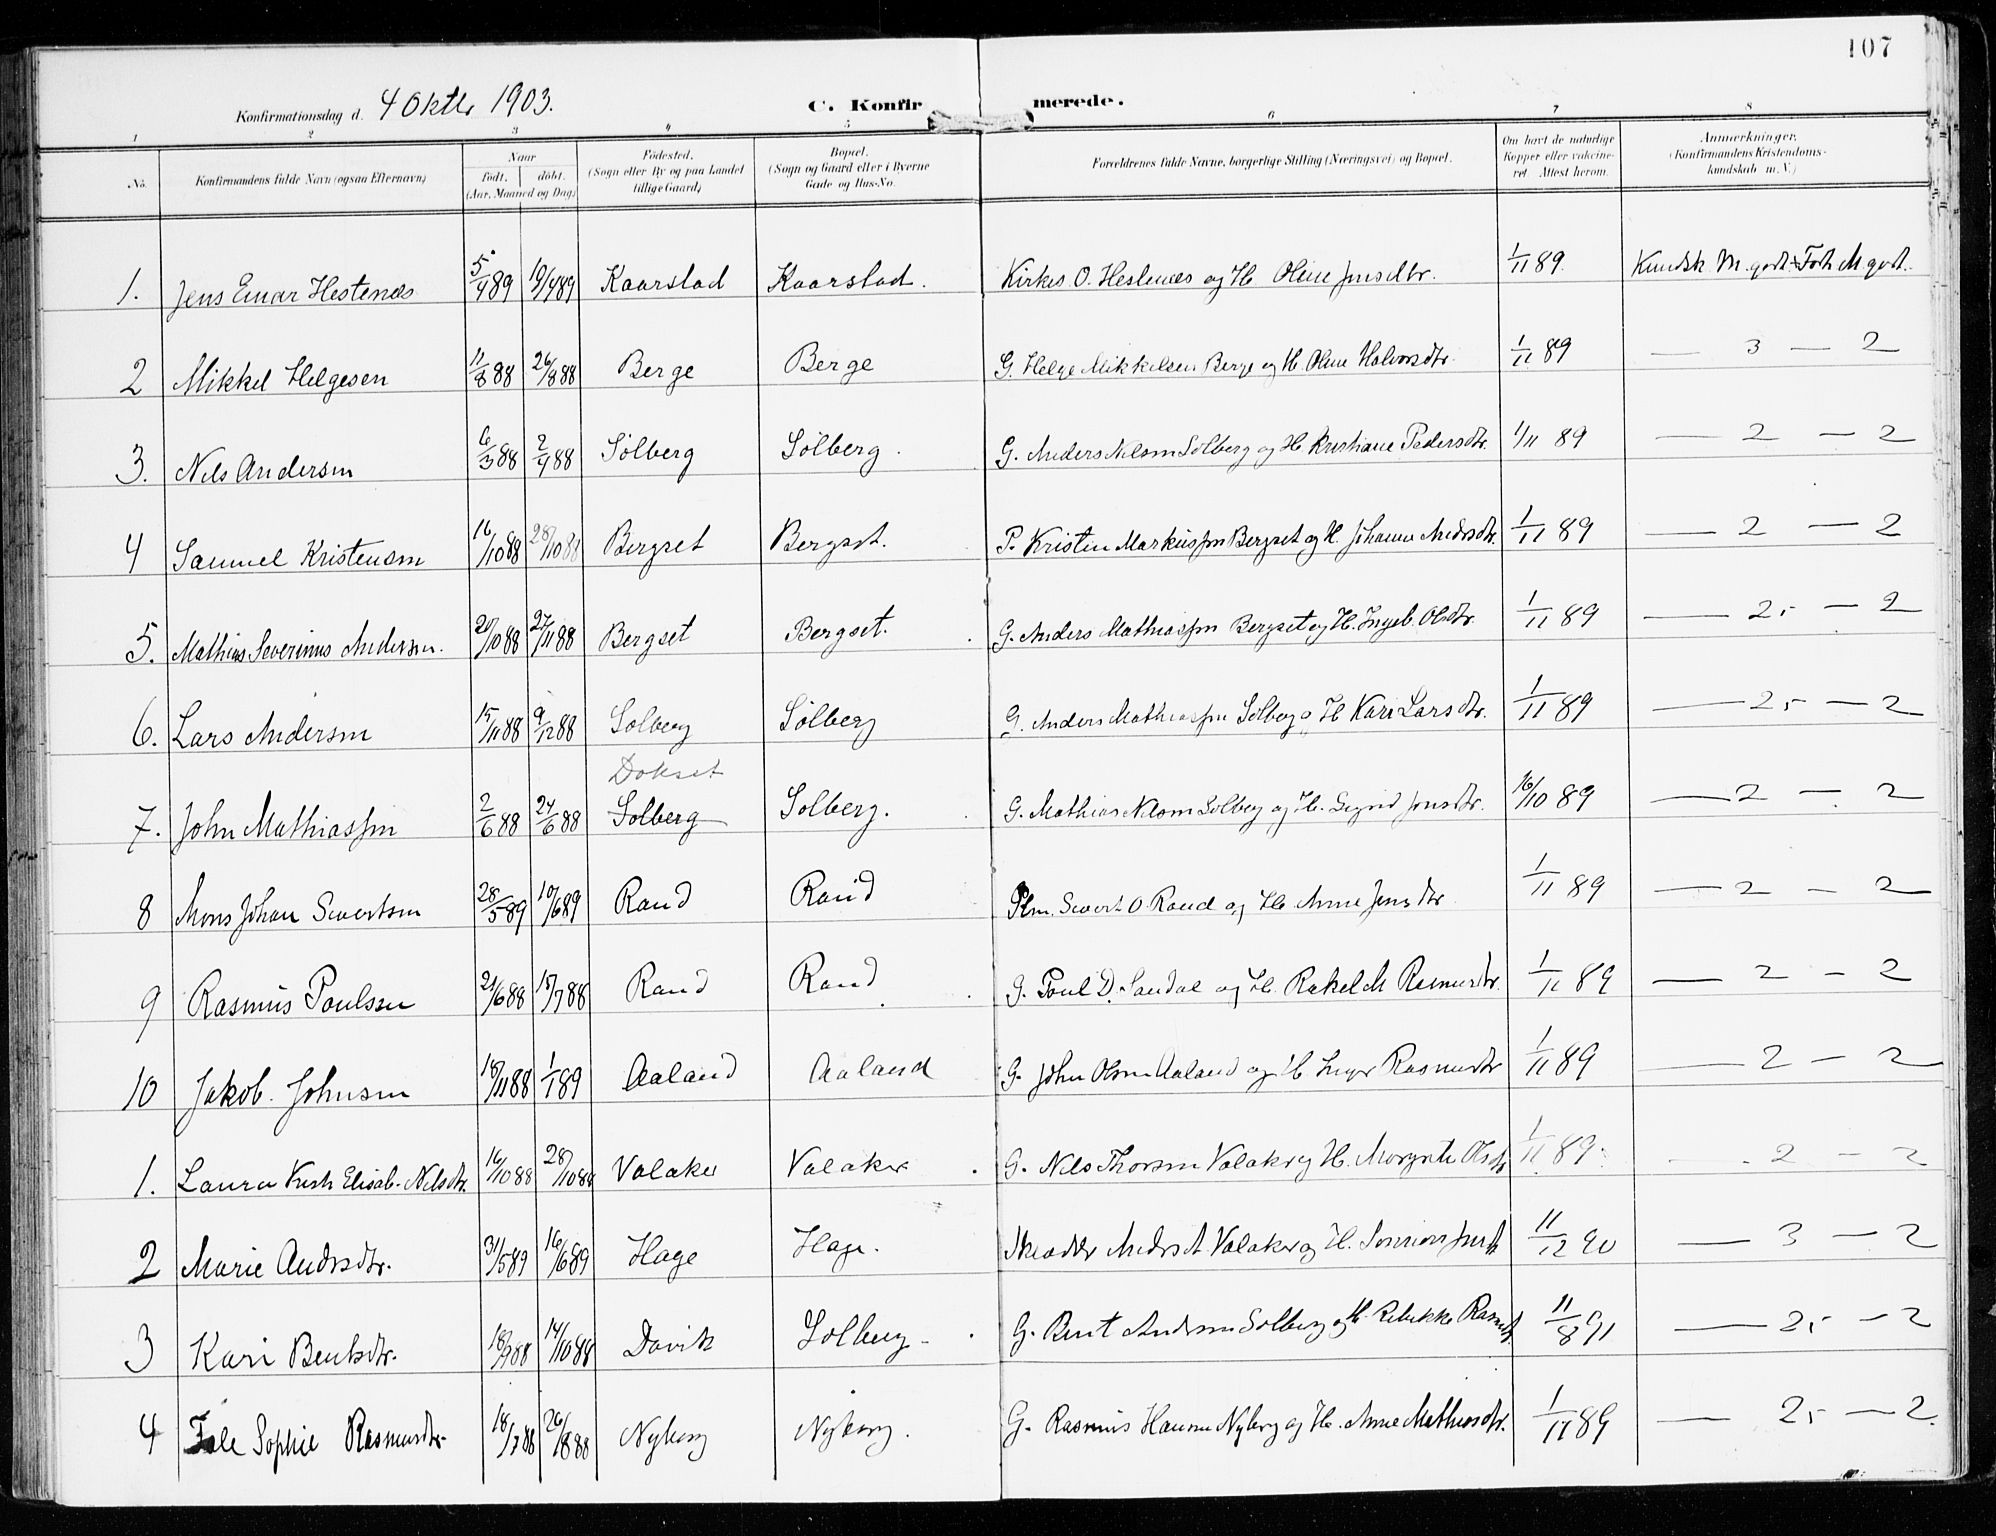 107
Konfirmationsdag d. 4 Oktbr 1903. C. Konfirmerede.
1 2 3 4 5 6 7 8
No. Konfirmandens fulde Navn (ogsaa Efternavn) Naar født. døbt. (Aar, Maaned og Dag) Fødested. (Sogn eller By og paa Landet tillige Gaard) Bopæl. (Sogn og Gaard eller i Byerne Gade og Hus-No. Forældrenes fulde Navne, borgerlige Stilling (Næringsvei) og Bopæl. Om havt de naturlige Kopper eller vakcineret. Attest herom. Anmærkninger. (Konfirmandens Kristendomskundskab m. V.)
1. Jens Einar Hestenes 5/4 89 19/4 89 Kaarstad Kaarstad. Kirkes. O. Hestenes og H. Oline Jensdtr. 1/11 89. Kundsk. M. godt Fot. M godt.
2 Mikkel Helgesen 11/8 88 26/8 88 Berge Berge G. Helge Mikkelsen Berge og H. Oline Halvorsdtr. 1/11 89 — 3 — 2
3. Nils Andersen 6/3 88 2/4 88 Solberg Solberg. G. Anders Nilsen Solberg og H. Kristiane Pedersdtr. 1/11 89 — 2 — 2
4 Samuel Kristensen 16/10 88 28/10 88 Bergset Bergset. P. Kristen Markussen Bergset og H. Johanne Andersdtr. 1/11 89 — 2 — 2
5. Mathias Severinus Andersen. 20/10 88 27/11 88 Bergset Bergset. G. Anders Mathiassen Bergset og H. Ingeb. Olsdtr. 1/11 89 — 2,- — 2
6. Lars Andersen 15/11 88 9/12 88 Solberg Solberg G. Anders Mathiassen Solberg og H Kari Larsdtr. 1/11 89 — 2,- — 2
Dokset
7. John Mathiassen 2/6 88 24/6 88 Solberg Solberg. G. Mathias Nilsen Solberg og H. Sigrid Jonsdtr. 16/10 89 — 2 — 2
8 Mons Johan Sivertsen 28/5 89 10/6 89 Rand Rand Plm. Sivert O. Rand og H. Anne Jensdtr. 1/11 89 — 2 — 2
9 Rasmus Poulssen 21/6 88 15/7 88 Rand Rand G. Poul D. Sandal og H. Rakel M Rasmusdtr. 1/11 89 — 2 — 2
10 Jakob Johnsen 18/11 88 1/1 89 Aaland Aaland G. John Olsen Aaland og H Inger Rasmusdtr 1/11 89 — 2 — 2
1. Laura Krist. Elisab. Nilsdtr. 16/10 88 28/10 88 Valaker Valaker G. Nils Thorsen Valaker og H. Margrete Olsdtr 1/11 89 — 2 — 2
2 Marie Andrsdtr. 31/5 89 16/6 89 Hage Hage. Anders A. Valaker og H. 11/12 90 — 3 — 2
3 Kari Bentsdtr. 18/9 88 14/10 88 Davik Solberg G. Bent Andersen Solberg og H. Rebekka Rasmdtr. 11/8 91 — 2,- — 2
4 Tale Sophie Rasmusdtr. 18/7 88 26/8 88 Nyborg Nyborg. G. Rasmus Hansen Nyborg og H. Anne Mathiasdtr. 1/11 89 — 2,- — 2.